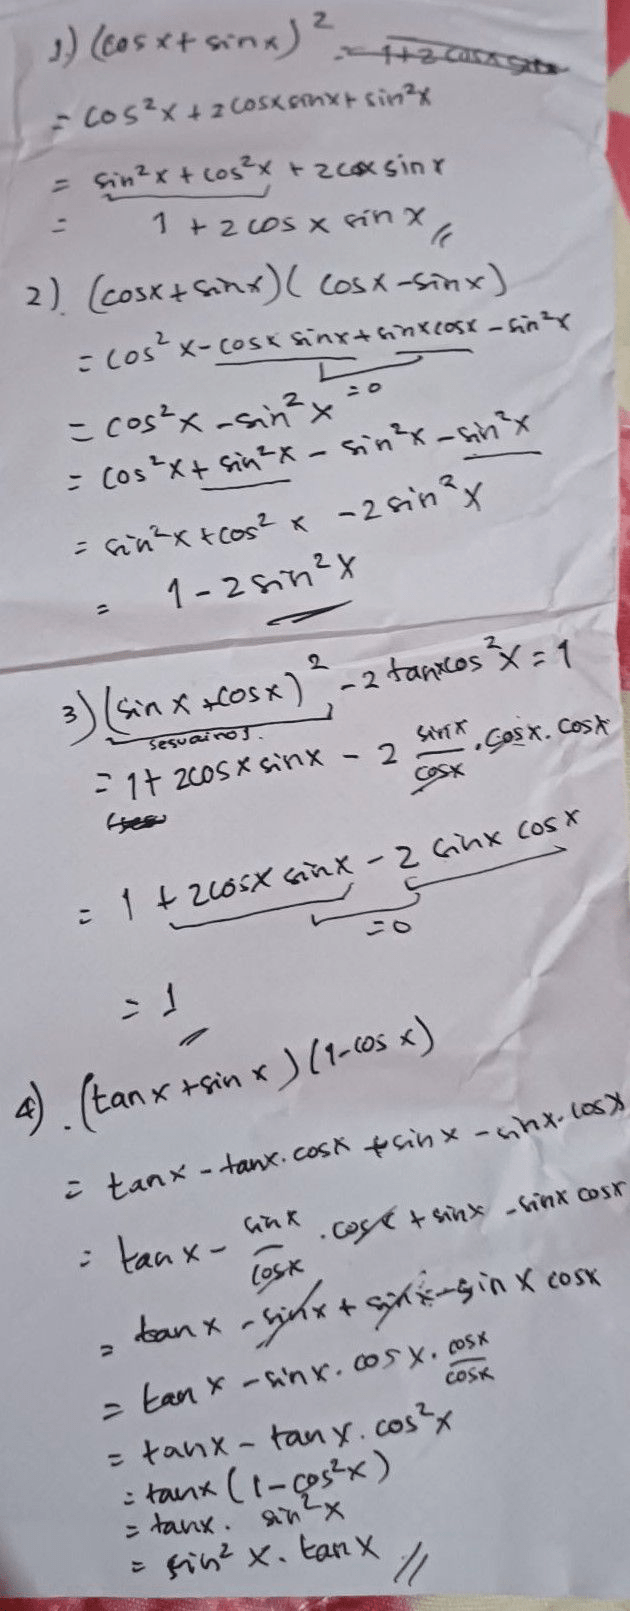 1) (cos x + sin x)² = 1+2 cos x sin x
= cos²x + 2 cosx sinx + sin²x
= sin²x + cos²x + 2cox sin x
= 1 + 2 cos x sin x //
2). (cosx + sinx)( cosx - sinx)
= cos²x - cosx sinx + sinxcosx - sin²x
= 0
= cos²x - sin²x
= cos²x + sin²x - sin²x - sin²x
= sin²x + cos²x - 2 sin²x
= 1 - 2 sin²x
3) (sin x + cosx)² - 2 tanxcos²x = 1
sesuai no 1.
= 1 + 2cosx sinx - 2 sinx/cosx . cosx . cosx
= 1 + 2cosx sinx - 2 sinx cosx
= 0
= 1 //
4). (tanx + sinx) (1 - cos x)
= tanx - tanx . cosx + sinx - sinx . cosx
= tanx - sinx/cosx . cosx + sinx - sinx cosx
= tanx - sinx + sinx - sinx cosx
= tanx - sinx . cosx . cosx/cosx
= tanx - tanx . cos²x
= tanx (1 - cos²x)
= tanx . sin²x
= sin²x . tanx //